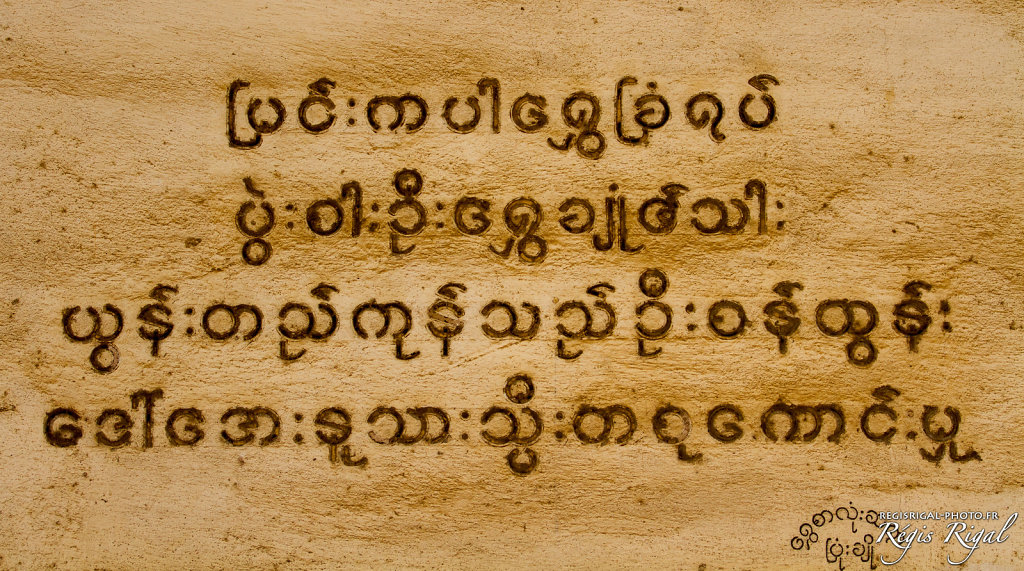 မြင်းကပါရွှေခြံရပ်
ပွဲးဝါးဦးရွှေချုံဇံသါး
ယွန်းတည်ကုန်သည်ဦးဝန်ထွန်း
ဒေါ်အေးနုသားသ္မီးတစုကောင်းမှု
ရွှေစာလုံး
REGISRIGAL-PHOTO.FR
Régis Rigal